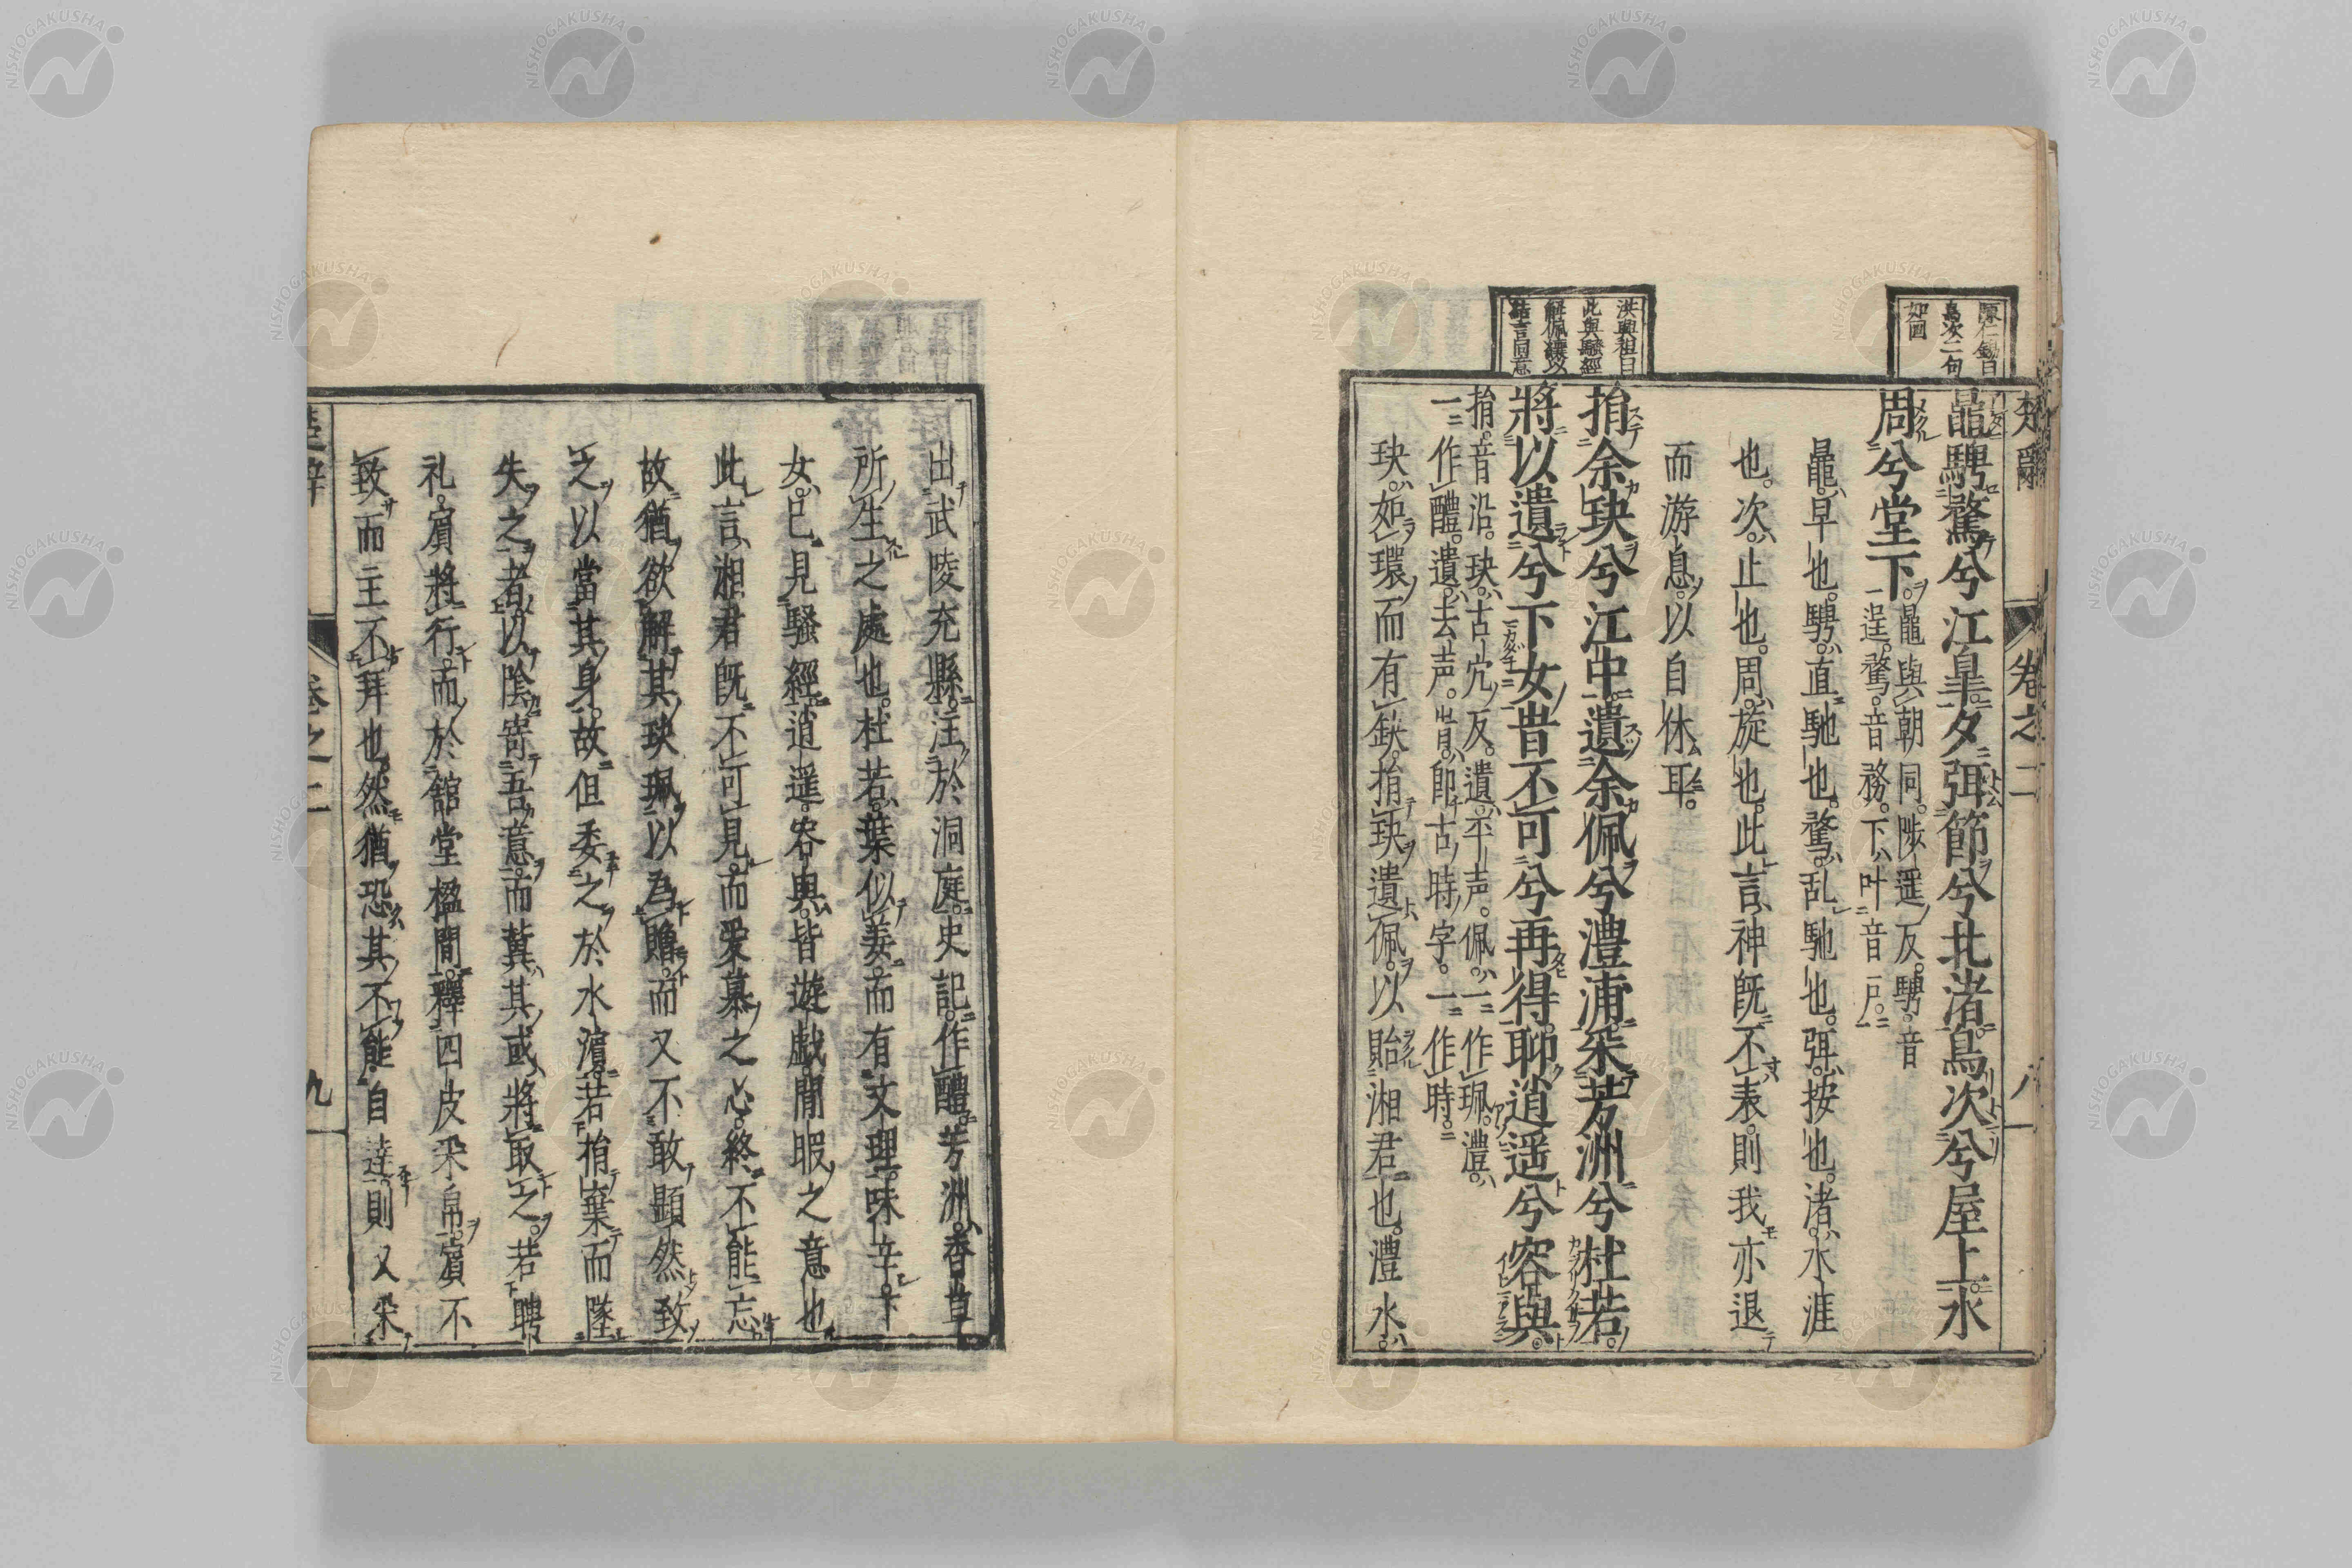 陳仁錫曰
鳥次二句
如画
洪興祖曰
此與騷經
解佩纕以
結言同意
楚辭 卷之二 八
鼂騁騖兮江皐夕弭節兮北渚鳥次兮屋上水
周兮堂下鼂與朝同陟遥反騁音
逞騖音務下叶音戸
鼂早也騁直馳也騖乱馳也弭按也渚水涯
也次止也周旋也此言神既不来則我亦退
而游息以自休耳
捐余玦兮江中遺余佩兮澧浦采芳洲兮杜若
將以遺兮下女旹不可兮再得聊逍遥兮容與
捐音沿玦古穴反遺平声佩一作珮澧
一作醴遺去声旹即古時字一作時
玦如環而有缺捐玦遺佩以貽湘君也澧水
出武陵充縣注於洞庭史記作醴芳洲香草
所生之處也杜若葉似姜而有文理味辛下
女已見騷經逍遥容與皆遊戯閒暇之意也
此言湘君既不可見而愛慕之心終不能忘
故猶欲解其玦珮以為贈而又不敢顕然致
之以當其身故但委之於水濵若捐棄而墜
失之者以陰寄吾意而冀其或將取之若聘
礼賓將行而於舘堂楹間釋四皮束帛賓不
致而主不拜也然猶恐其不能自達則又采
楚辭 卷之二 九
NISHOGAKUSHA